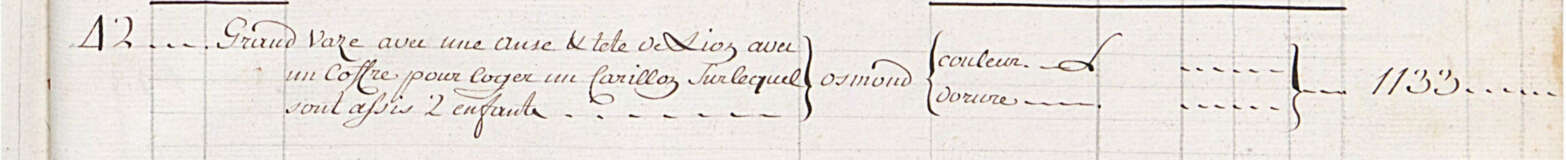 42 .... Grand Vaze avec une anse & tete de Lion avec
un Coffre pour loger un Carillon Sur lequel
sont assis 2 enfants . - - - - - -
osmond
couleur. - - - - - -
dorure - - - - - -
1133 ......